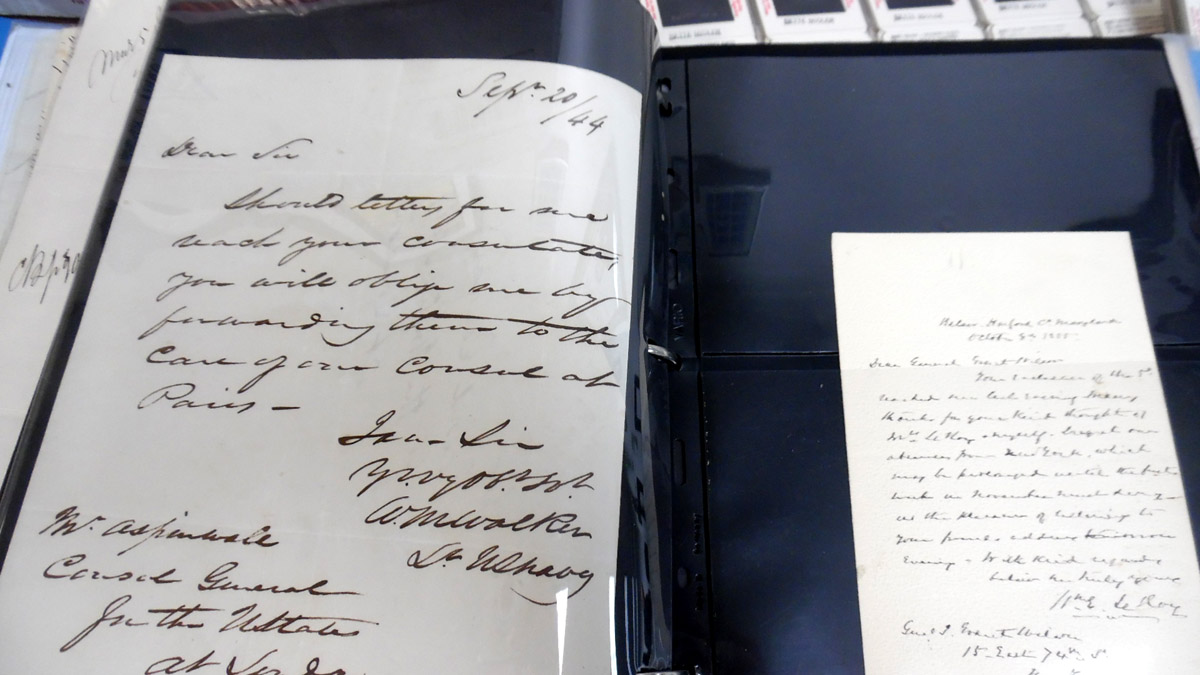 Sepr. 20/44
Dear Sir
Should letters for me
reach your consulate,
you will oblige me by
forwarding them to the
Care of our Consul at
Paris -
I am Sir
Yr. vy Obt. Svt.
W. M. Walker
Lt. U.S. Navy
Mr. Aspinwall
Consul General
for the U States
at London
Belair Harford Co. Maryland
October 9th
Dear General Grant Wilson
Your enclosure of the 5th
reached me last evening. Many
thanks for your kind thought of
Mrs. Le Roy & myself. I regret our
absence from New York, which
may be prolonged until the first
week in November must deny
us the pleasure of listening to
your address tomorrow
Evening - With kind regards
believe me truly yours
Wm. E. Le Roy
Genl. J. Grant Wilson
15 East 74th St